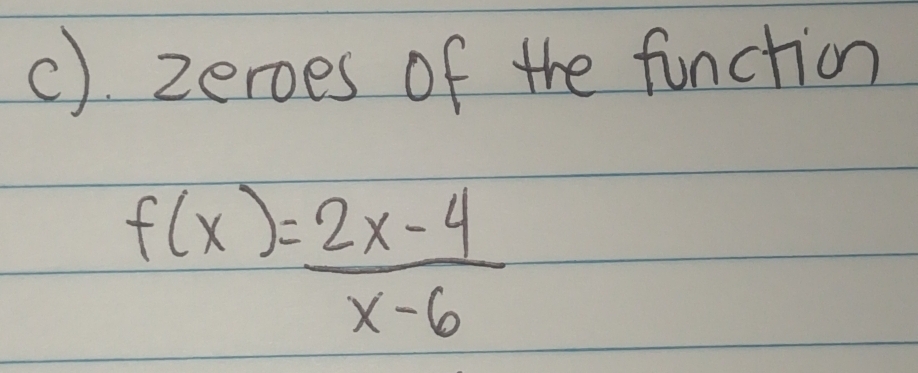 c). zeroes of the function
f(x)=2x-4
x-6